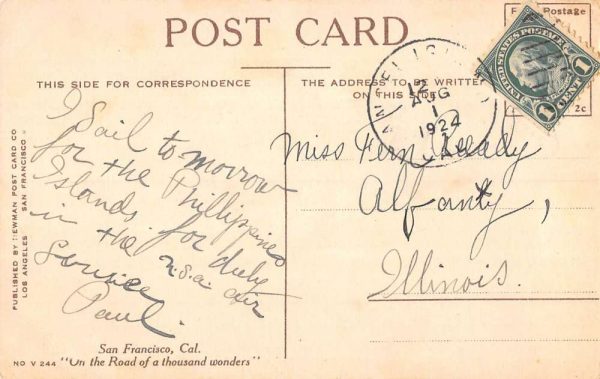 POST CARD
THIS SIDE FOR CORRESPONDENCE
I Sail to-morrow
for the Phillippines
Islands for duty
in the U.S.A. air
Service
Paul.
San Francisco, Cal.
NO V 244 "On the Road of a thousand wonders"
PUBLISHED BY NEWMAN POST CARD CO
LOS ANGELES SAN FRANCISCO
THE ADDRESS TO BE WRITTEN
ON THIS SIDE
12
AUG
1
1924
Miss Fern
Illinois.
Postage
2c
UNITED STATES POSTAGE
1 CENT 1